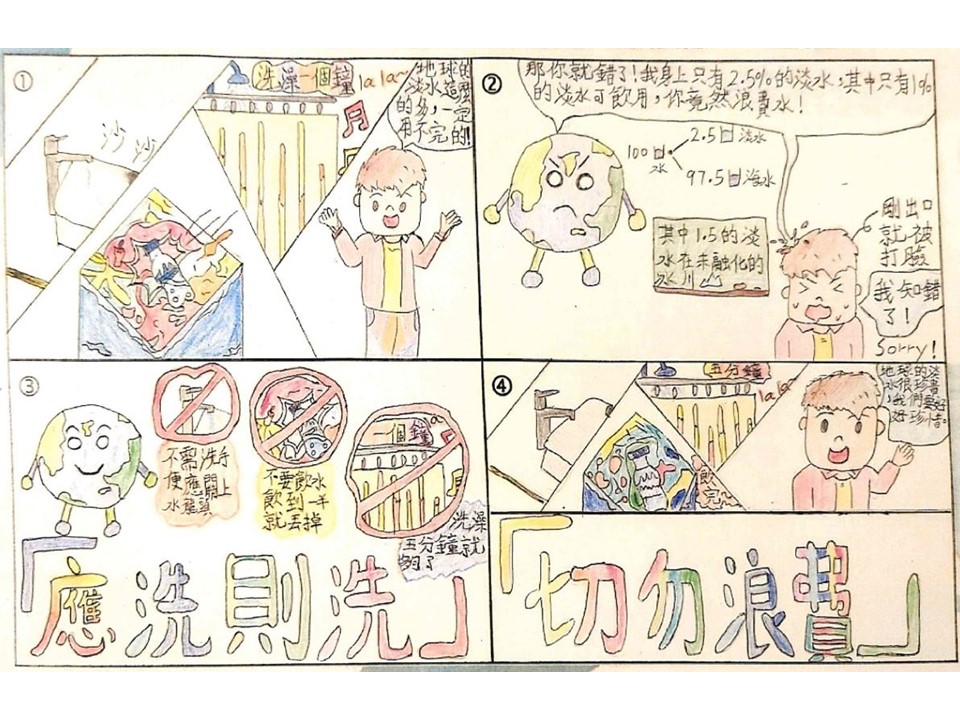 ①
沙沙
洗澡一個鐘
la la~
地球的
淡水這麼
的多,一定
用不完的!
②
那你就錯了!我身上只有2.5%的淡水,其中只有1%
的淡水可飲用,你竟然浪費水!
100回
水
2.5回淡水
97.5回海水
其中1.5的淡
水在未融化的
冰川
剛出口
就被
打敗
我知錯
了!
Sorry!
③
不需洗手
便應關上
水龍頭
一個鐘
不要飲水
飲到一半
就丟掉
洗澡
五分鐘就
夠了
「應洗則洗」
④
五分鐘
la la
飲
完
地球的淡
水很珍
,我們要好
好珍惜。
「切勿浪費」